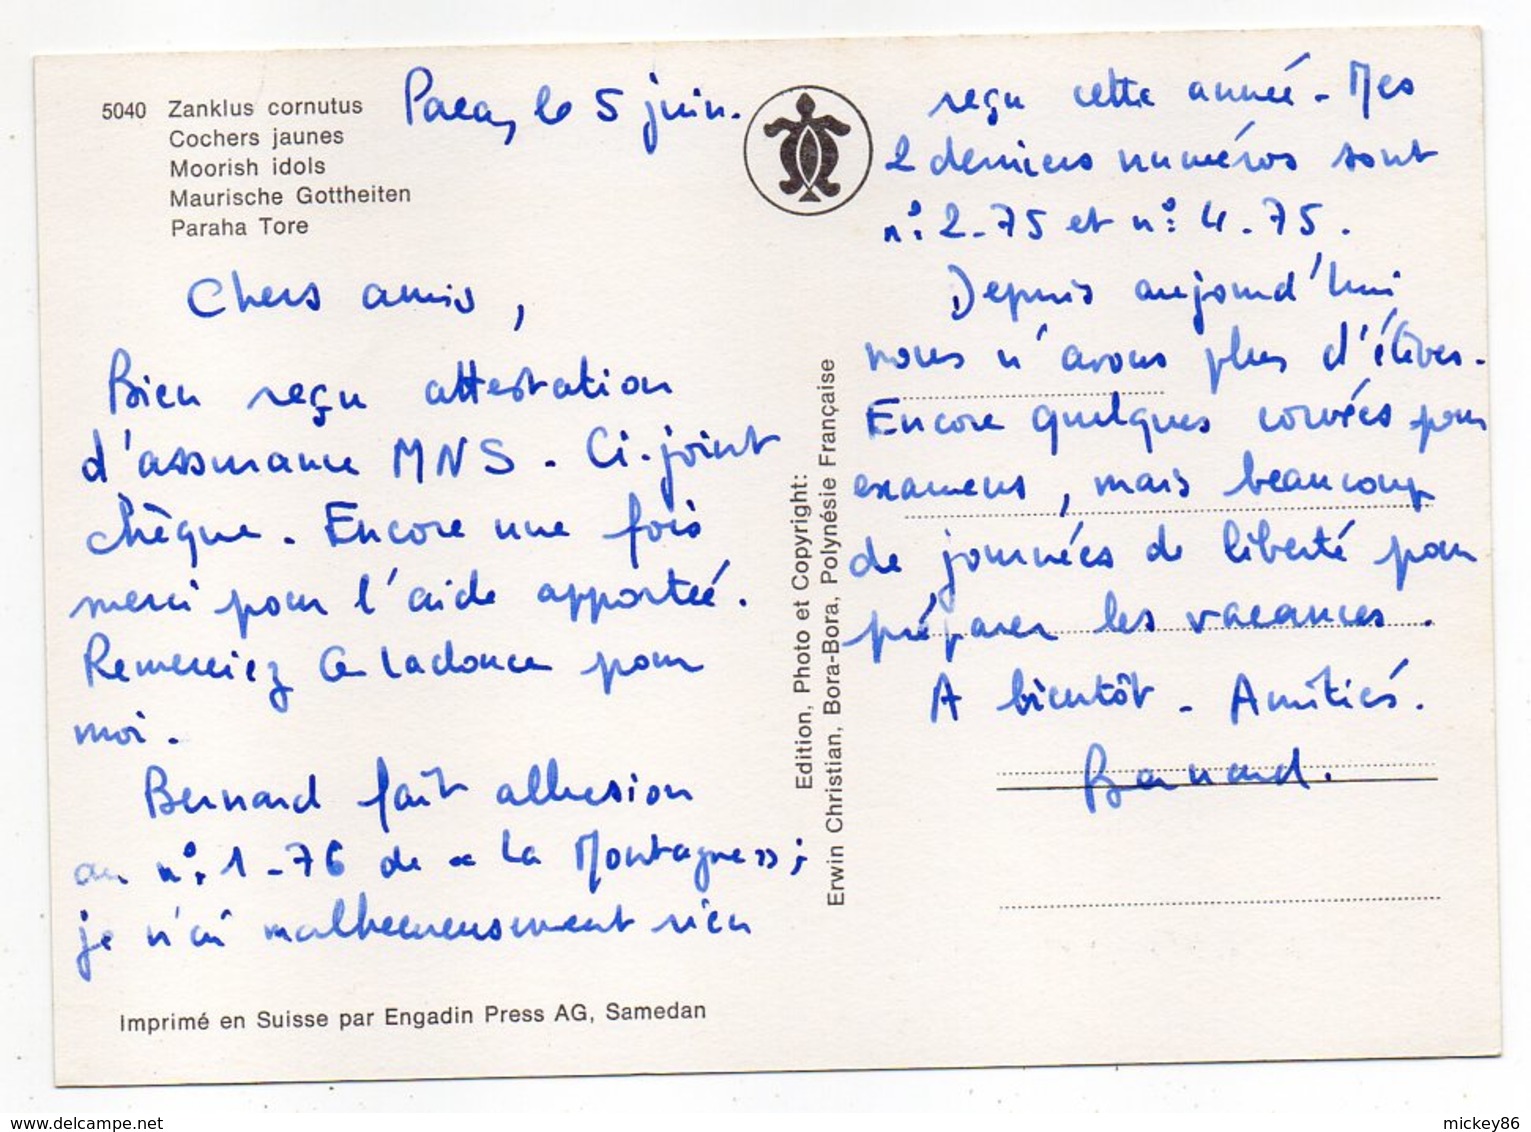 5040 Zanklus cornutus
Cochers jaunes
Moorish idols
Maurische Gottheiten
Paraha Tore
Paea, le 5 juin.
Chers amis,
Bien reçu attestation
d'assurance MNS. Ci-joint
chèque. Encore une fois
merci pour l'aide apportée.
Remerciez Ladouce pour
moi.
Bernard fait allusion
au n° 1-76 de « La Montagne » ;
je n'ai malheureusement rien
Imprimé en Suisse par Engadin Press AG, Samedan
Edition, Photo et Copyright:
Erwin Christian, Bora-Bora, Polynésie Française
reçu cette année - Mes
2 derniers numéros sont
n° 2-75 et n° 4-75.
Depuis aujourd'hui
nous n'avons plus d'élèves.
Encore quelques corvées pour
examens, mais beaucoup
de journées de liberté pour
préparer les vacances.
A bientôt - Amitiés.
Bernard.
delcampe.net
mickey86